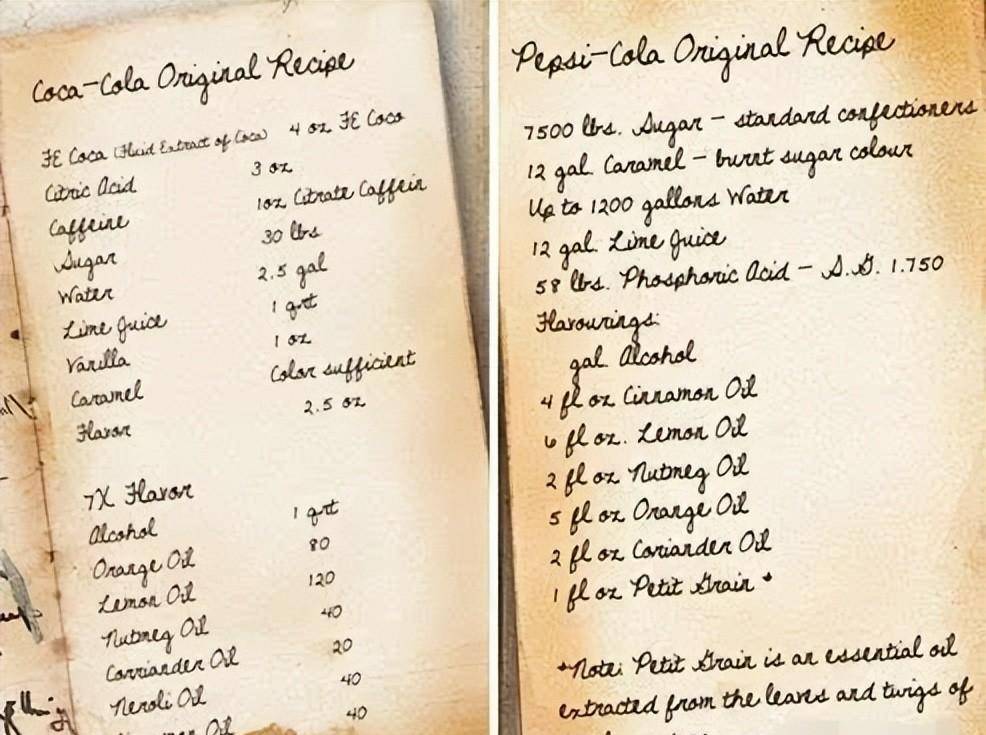 Coca-Cola Original Recipe
FE Coca (Fluid Extract of Coca) 4 oz FE Coco
Citric Acid 3 oz
Caffeine 1oz Citrate Caffein
Sugar 30 lbs
Water 2.5 gal
Lime Juice 1 qrt
Vanilla 1 oz
Caramel Color sufficient
Flavor 2.5 oz
7X Flavor
Alcohol 1 qrt
Orange Oil 80
Lemon Oil 120
Nutmeg Oil 40
Corriander Oil 20
Neroli Oil 40
Oil 40
Pepsi-Cola Original Recipe
7500 lbs. Sugar - standard confectioners
12 gal. Caramel - burnt sugar colour
Up to 1200 gallons Water
12 gal. Lime Juice
58 lbs. Phosphoric Acid - S.G. 1.750
Flavourings:
gal. Alcohol
4 fl oz Cinnamon Oil
6 fl oz. Lemon Oil
2 fl oz Nutmeg Oil
5 fl oz Orange Oil
2 fl oz Coriander Oil
1 fl oz Petit Grain *
*Note: Petit Grain is an essential oil
extracted from the leaves and twigs of